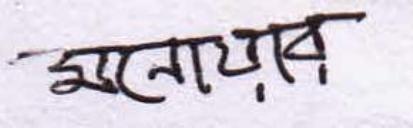 মনোয়ার